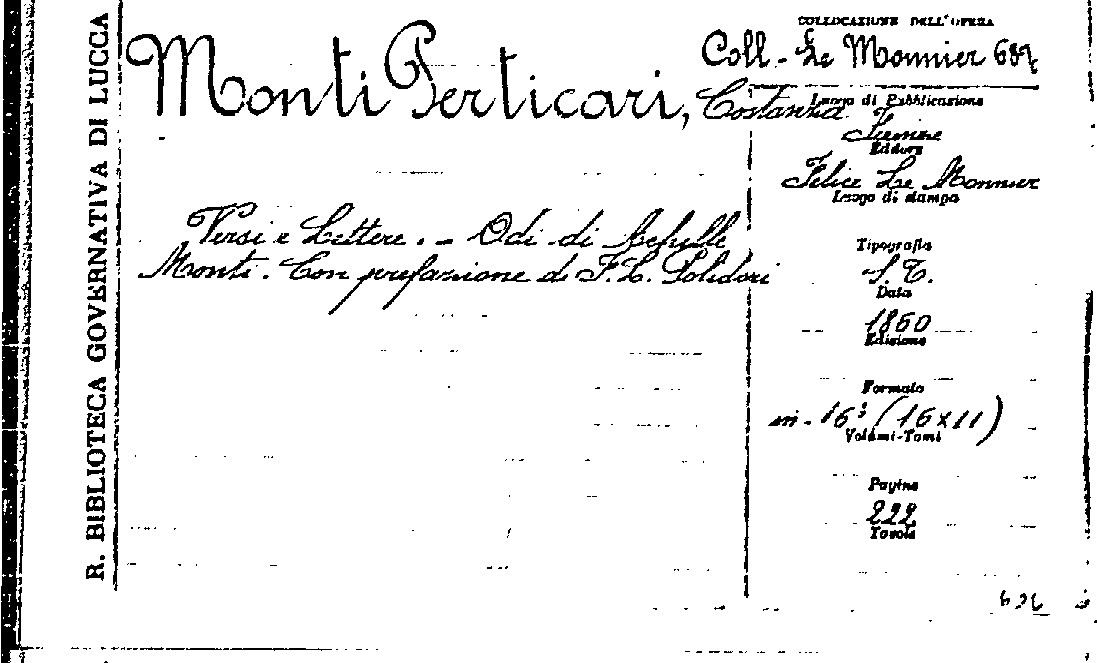 R. BIBLIOTECA GOVERNATIVA DI LUCCA
COLLOCAZIONE DELL'OPERA
Coll - Le Monnier
Monti Perticari, Costanza
Luogo di Pubblicazione
Firenze
Editore
Felice Le Monnier
Luogo di stampa
Versi e Lettere. - Odi di Achille
Monti. Con prefazione di F. L. Polidori
Tipografia
S. T.
Data
1860
Edizione
Formato
in - 16° (16x11)
Volumi-Tomi
Pagine
222
Tavole